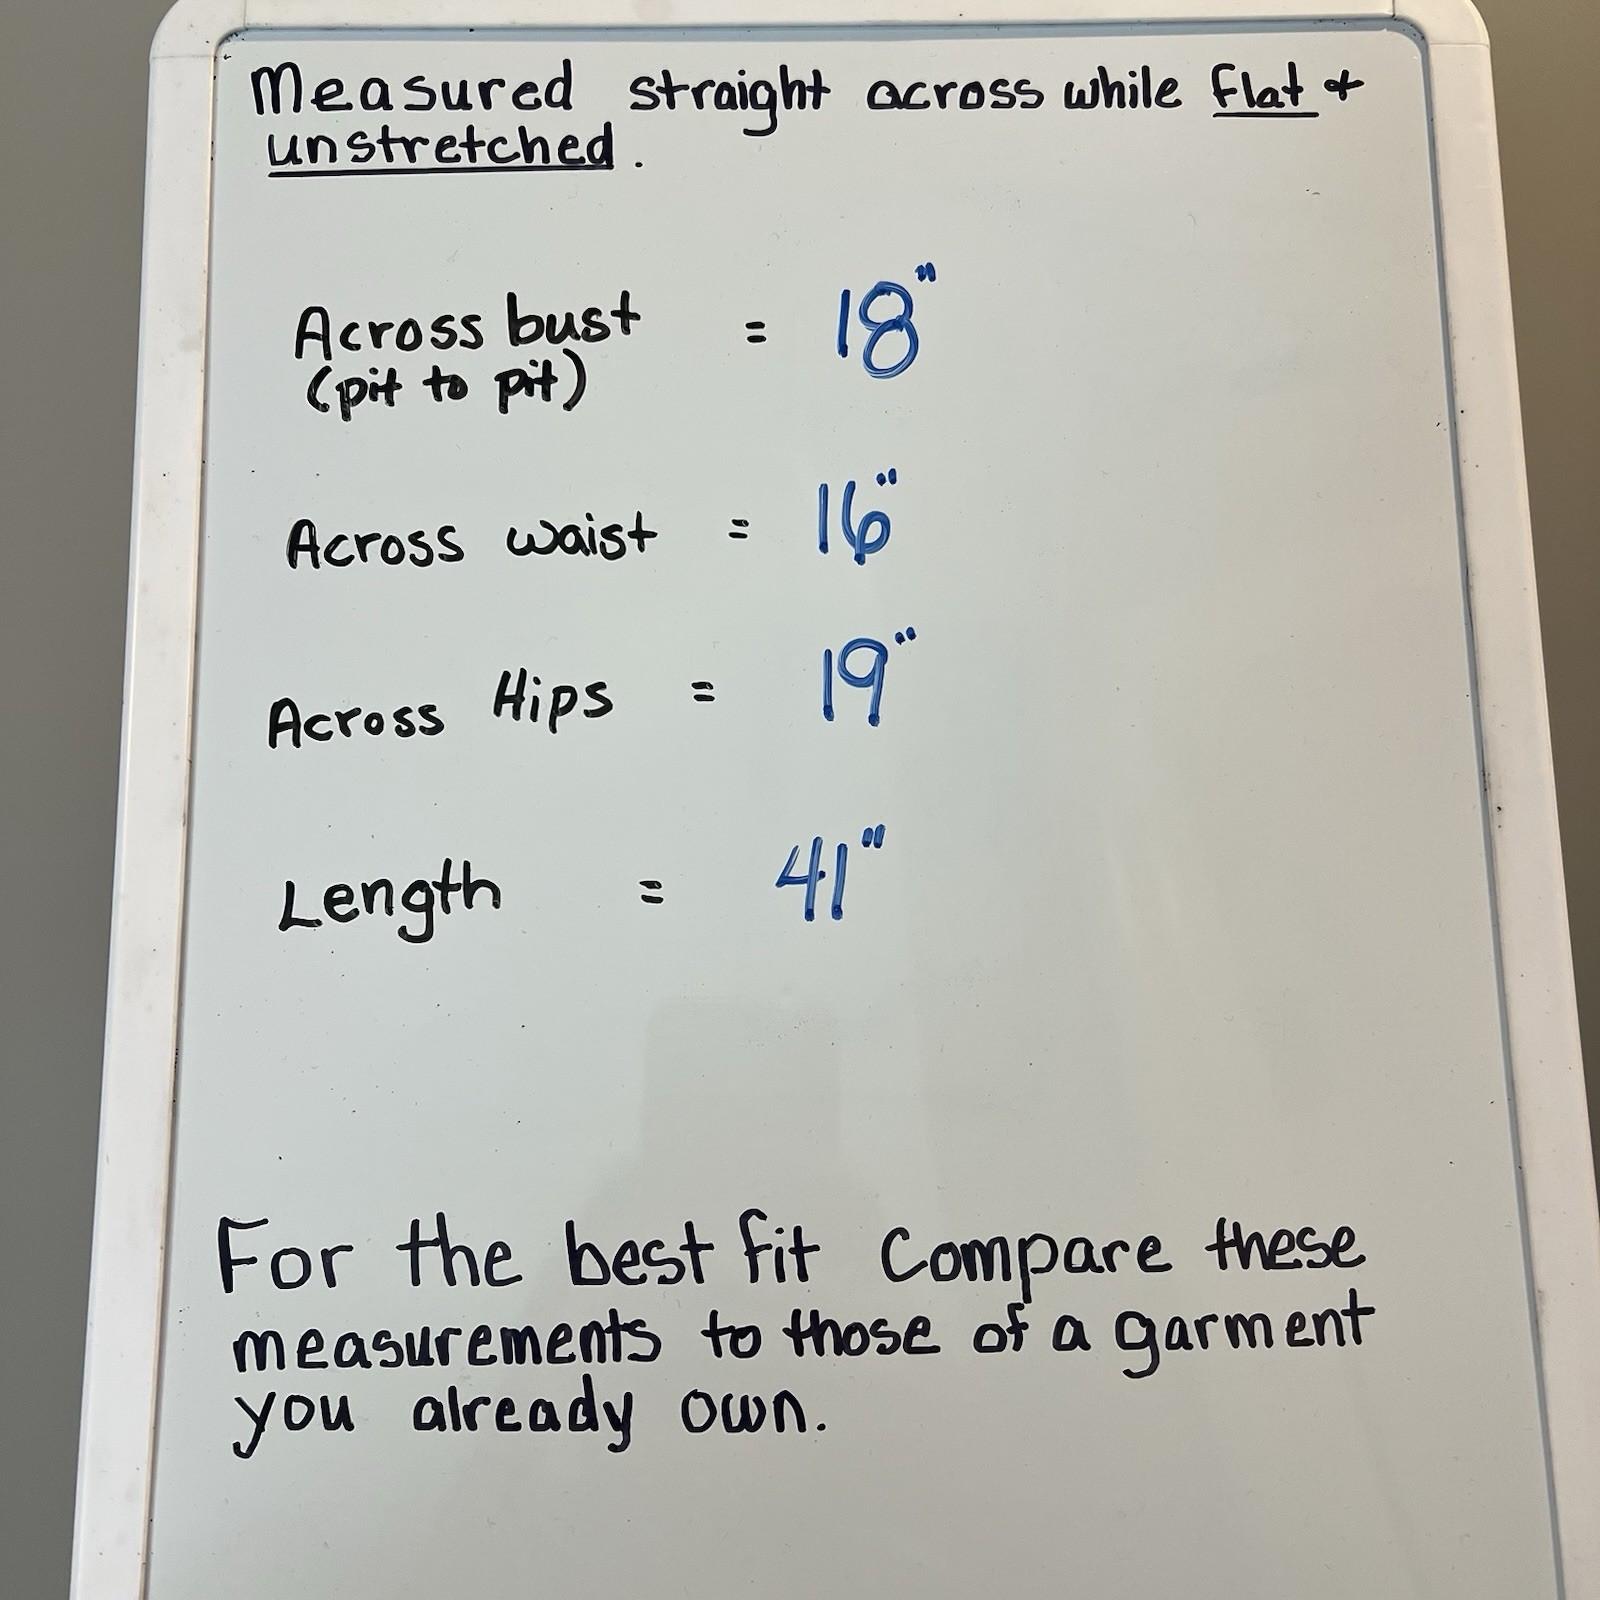 Measured straight across while flat &
unstretched.
Across bust = 18"
(pit to pit)
Across waist = 16"
Across Hips = 19"
Length = 41"
For the best fit Compare these
measurements to those of a garment
you already own.